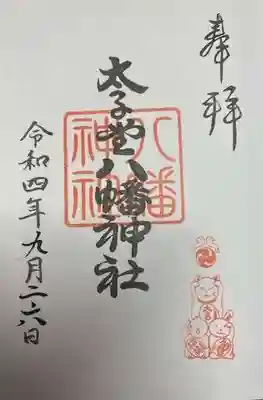 奉拝
太子堂八幡神社
八幡神社
令和四年九月二十六日